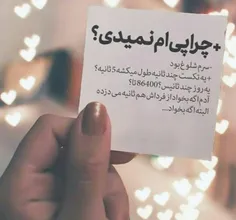 +چرا پی ام نمیدی؟
-سرم شلوغ بود
+یه تکست چند ثانیه طول میکشه؟ 5 ثانیه؟
یه روز چند ثانیس؟ 86400تا؟
آدم اگه بخواد از فرداش هم ثانیه می دزده
البته اگه بخواد...